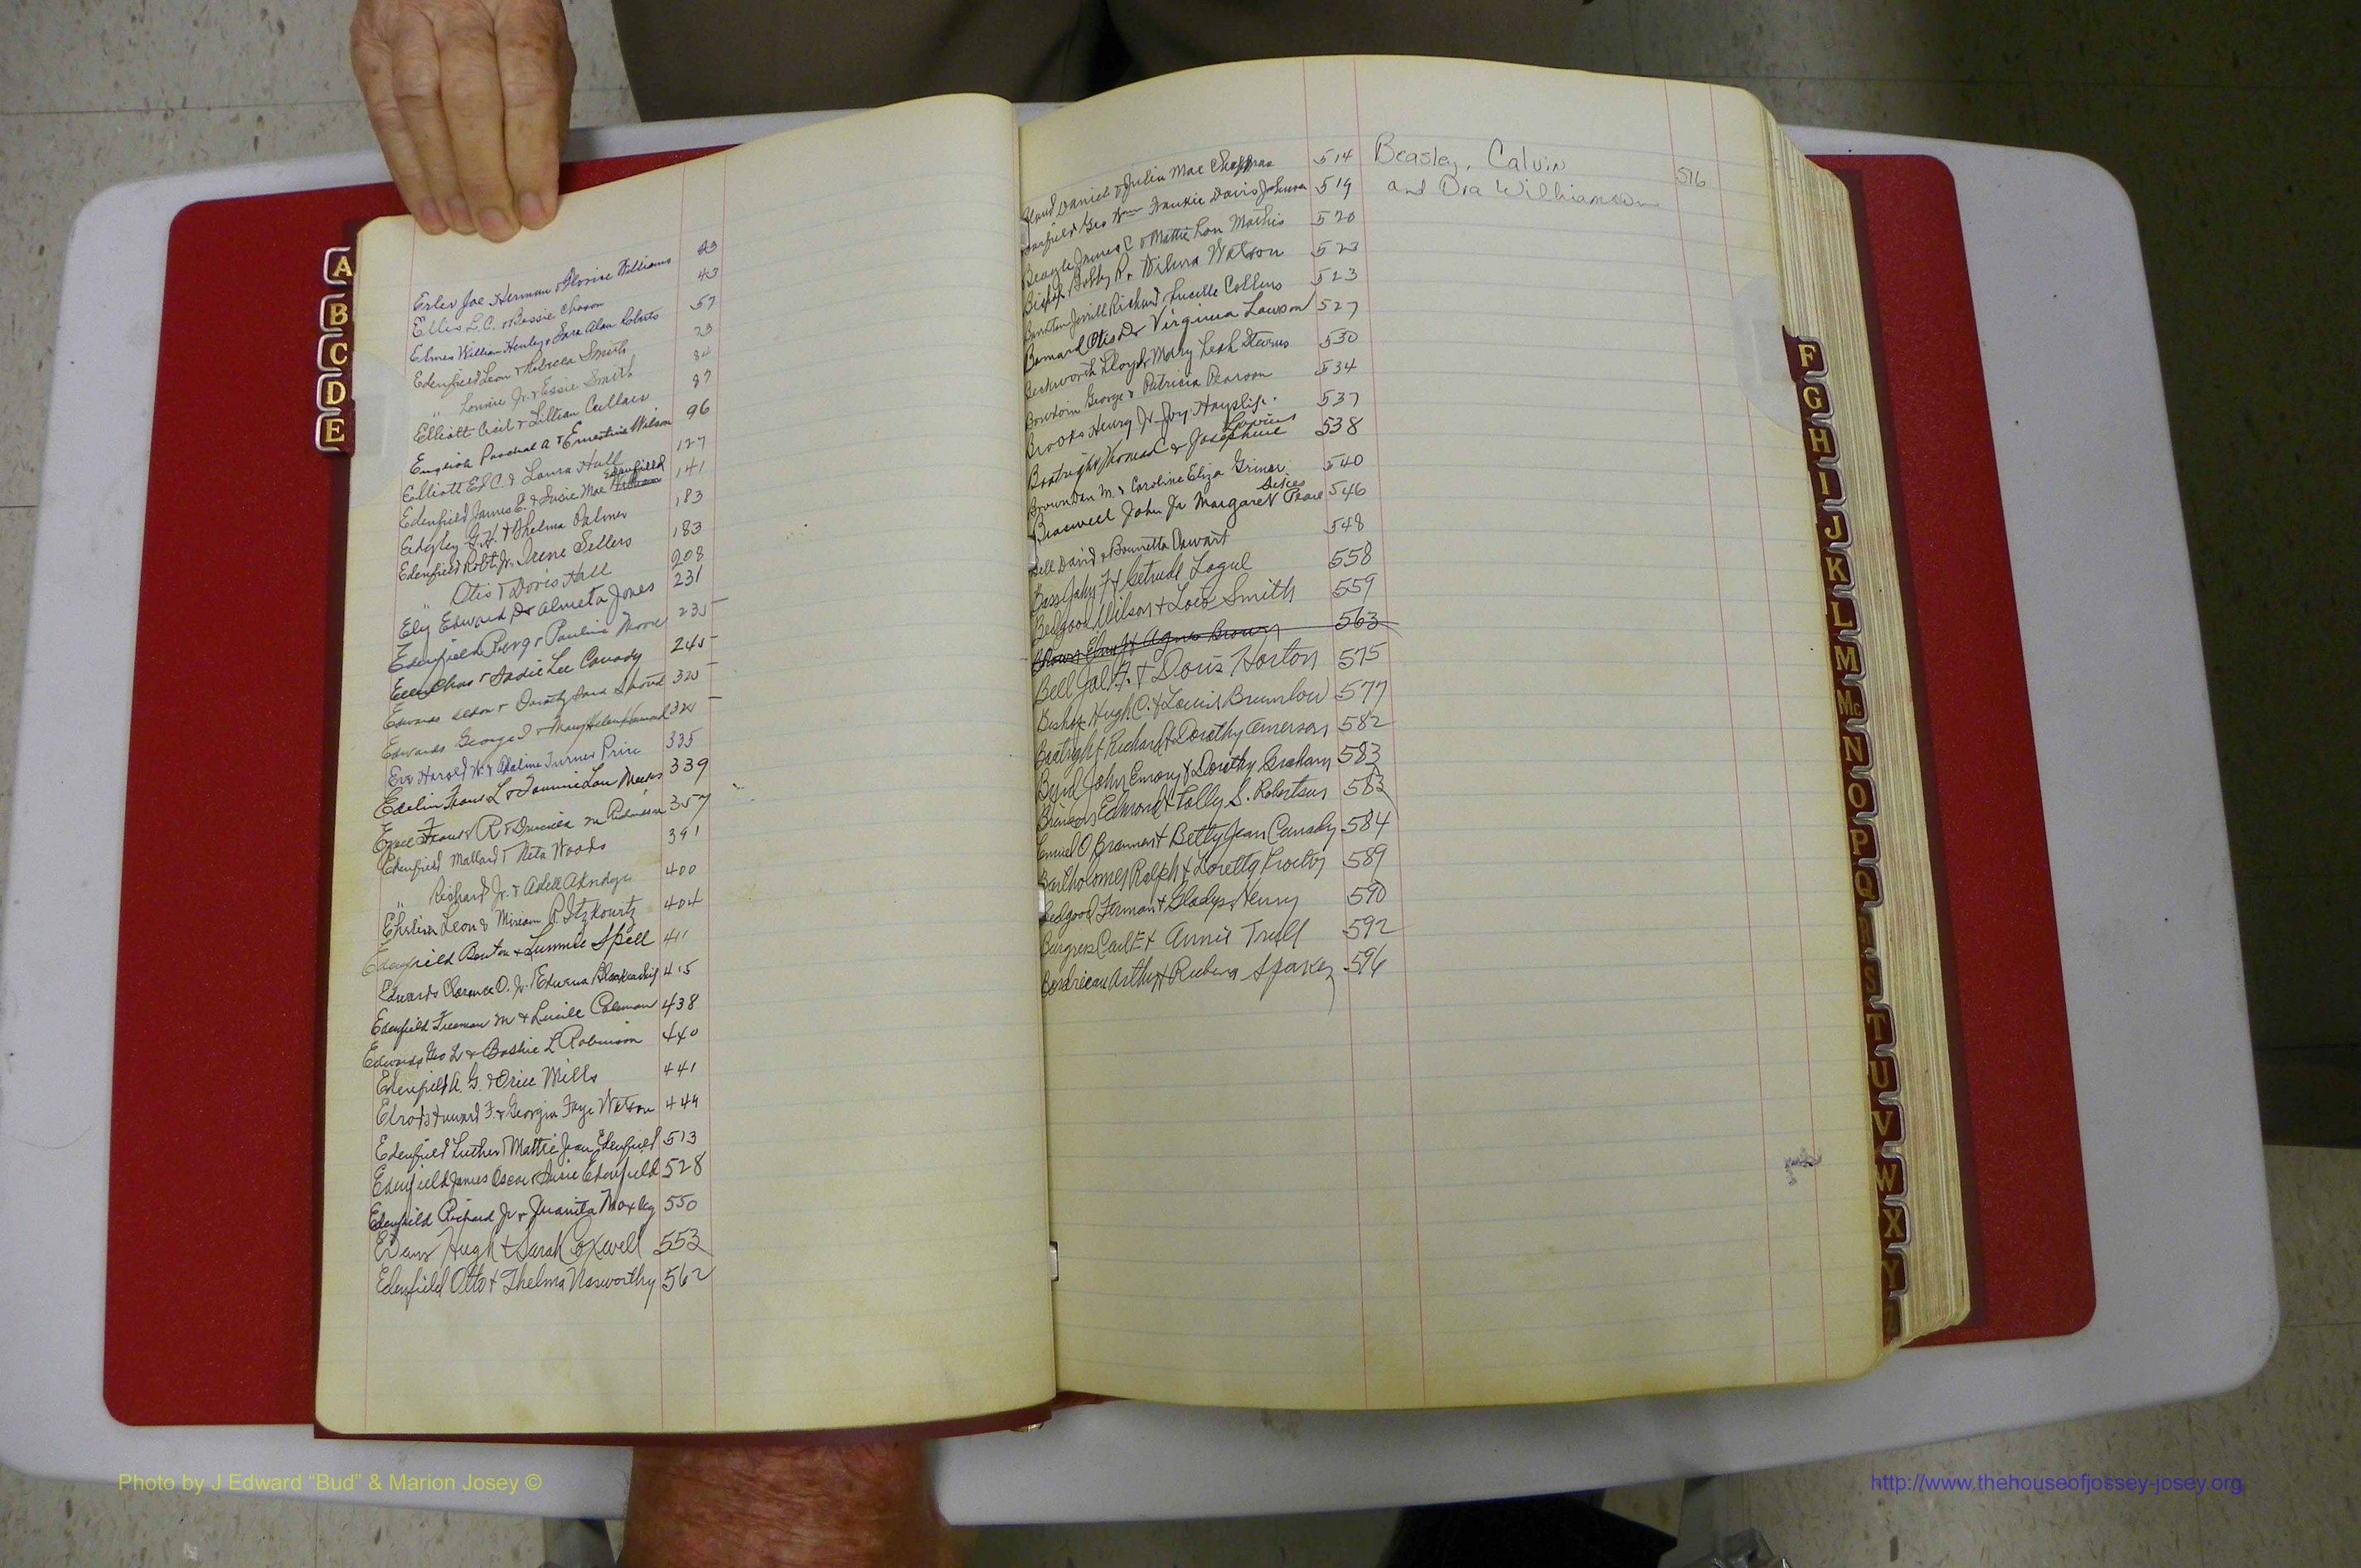 A
B
C
D
E
Joe Herman & Williams 23
Ellis L.C. & Bessie Chason 43
Elmes William Henley & Sara Alan Roberts 57
Edenfield Leon & Rebecca Smith 23
" Lonnie Jr. & Essie Smith 84
Elliott Cecil & Lillian Collins 87
English Paschal A & Ernestine Wilson 96
Elliott Ed C. & Laura Hall 127
Edenfield James E. & Susie Mae Edenfield 141
Edgley G.H. & Thelma Palmer 183
Edenfield Robt. Jr. Irene Sellers 183
" Otis & Doris Hall 208
Ely Edward D & Almeta Jones 231
Edenfield & Pauline Moore 235
Chas & Sadie Lee Canady 245
Edwards & Dorothy 325
Edwards George & Mary Helen
Harold W. & Adaline Turner Price 335
L & Fannie Lou Meeks 339
Frank R & M Robinson 357
Edenfield Mallard & Neta Woods 391
" Richard Jr. & Adell Akridge 400
Leon & Miriam R. Itzkowitz 404
Edenfield Benton & Lummie Spell 411
Edwards Clarence O. Jr. & Edwena 415
Edenfield Freeman M & Lucile Coleman 438
Edwards Geo L & Bashie L Robinson 440
Edenfield A. G. & Price Mills 441
Elrod Howard F. & Georgia Faye Watson 449
Edenfield Luther & Mattie Jean Edenfield 513
Edenfield James Oscar & Susie Edenfield 528
Edenfield Richard Jr & Juanita Moxley 550
Evans Hugh & Sarah Coxwell 553
Edenfield Otto & Thelma Nasworthy 562
Daniel & Julia Mae Chapman 514
Geo Frankie Davis Johnson 519
Beagle James C & Mattie Lou Mathis 520
Bishop, Bobby R. & Wilma Watson 523
Richard & Lucille Collins 523
Barnard Otis D & Virginia Lawson 527
Beckworth Lloyd & Mary Leah Stevens 530
Bowden George & Patricia Pearson 534
Brooks Henry Jr & Joy Hayslip. 537
Boatright Thomas C & Josephine 538
Brown Dan M. & Caroline Eliza Griner 540
Braswell John Jr Margaret 546
Bell David & 548
Bass John F & Getrude Logue 558
Bedgood Wilson & Lois Smith 559
Brown & Agnes Brown 563
Bell Jal F. & Doris Horton 575
Bishop Hugh O. & Brumlow 577
Boatright Richard & Dorothy Amerson 582
Byrd John Emory & Dorothy Graham 583
Edmond & Polly S. Robertson 583
Lemuel O Brannen & Betty Jean Canady 584
Bartholomew Ralph & Loretta Proctor 589
Bedgood Ferman & Gladys Henry 590
Burgess Carl E & Annie Trull 592
Arthur & 596
Beasley, Calvin
and Ora Williamson 516
F
G
H
I
J
K
L
M
Mc
N
O
P
Q
R
S
T
U
V
W
X
Y
Photo by J Edward “Bud” & Marion Josey ©
http://www.thehouseofjossey-josey.org